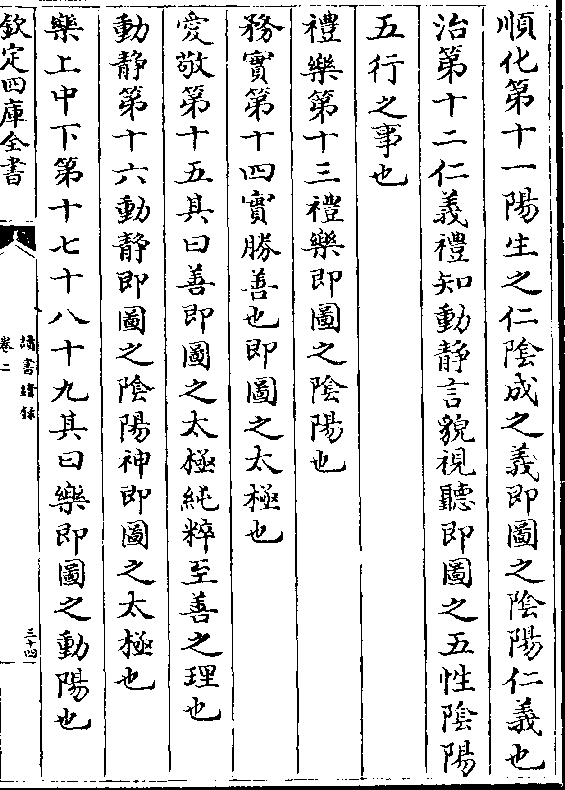 順化第十一陽生之仁陰成之義即圖之陰陽仁義也
治第十二仁義禮知動靜言貌視聽即圖之五性陰陽
五行之事也
禮樂第十三禮樂即圖之陰陽也
務實第十四實勝善也即圖之太極也
愛敬第十五其曰善即圖之太極純粹至善之理也
動靜第十六動靜即圖之陰陽神即圖之太極也
樂上中下第十七十八十九其曰樂即圖之動陽也
欽定四庫全書
讀書續錄
卷二
三十四